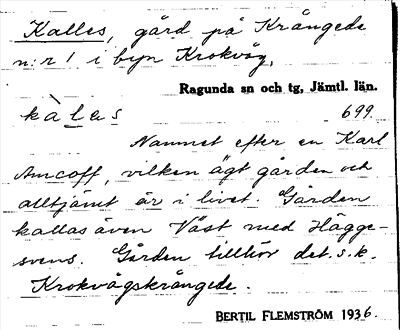 Kalles, gård på Krångede
n:r 1 i byn Krokvåg,
Ragunda sn och tg, Jämtl. län.
kàlas 699.
Namnet efter en Karl
Amcoff, vilken ägt gården och
alltjämt är i livet. Gården
kallas även Väst med Hägge-
svens. Gården tillhör det s.k.
Krokvågskrångede.
BERTIL FLEMSTRÖM 1936.